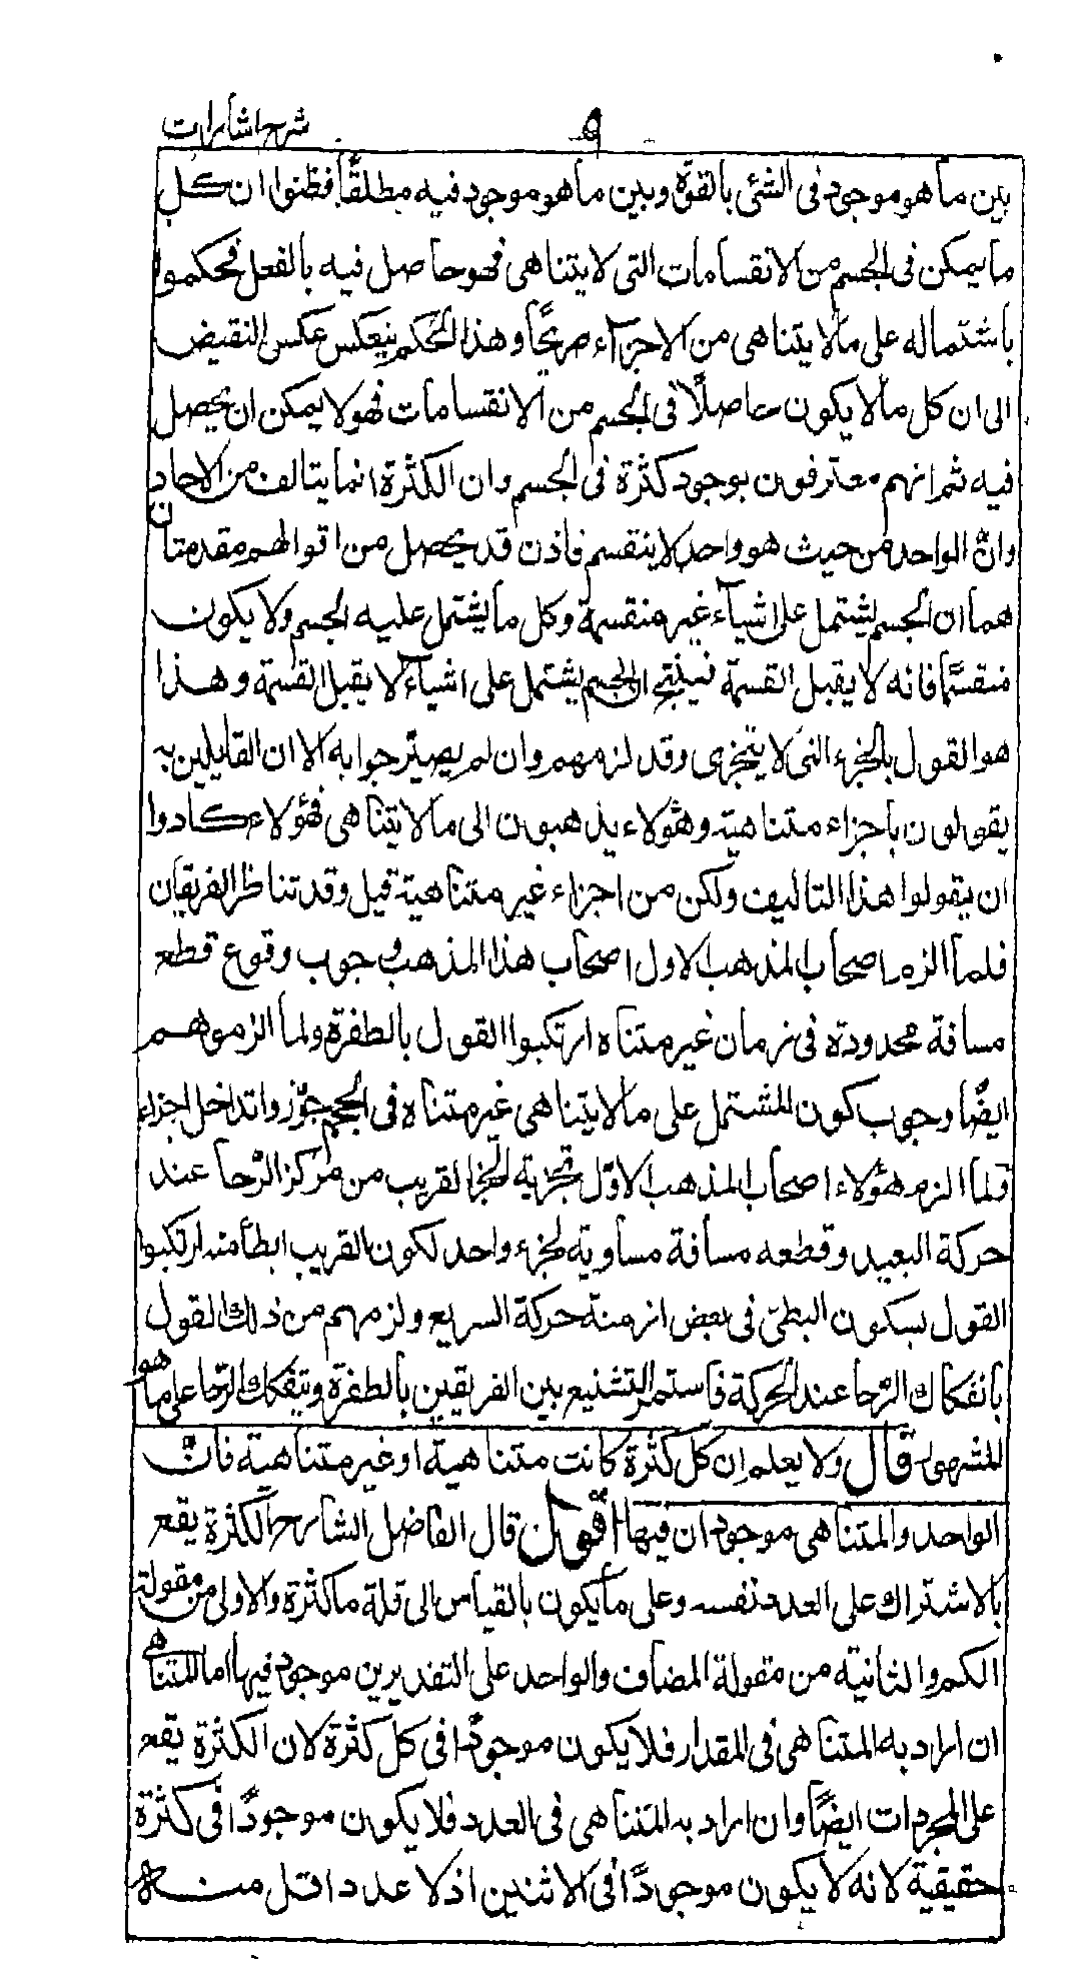 ٩
شرح اشارات
بين ما هو موجود فى الشئ بالقوة وبين ما هو موجود فيه مطلقًا فظنوا ان كل
ما يمكن فى الجسم من الانقسامات التى لا يتناهى فهو حاصل فيه بالفعل فحكموا
باشتماله على ما لا يتناهى من الاجزاء صريحًا وهذا الحكم ينعكس عكس النقيض
الى ان كل ما لا يكون حاصلًا فى الجسم من الانقسامات فهو لا يمكن ان يحصل
فيه ثم انهم معترفون بوجود كثرة فى الجسم وان الكثرة انما يتالف من الاحاد
وانّ الواحد من حيث هو واحد لا ينقسم فاذن قد يحصل من اقوالهم مقدمتان
هما ان الجسم يشتمل على اشياء غير منقسمة وكل ما يشتمل عليه الجسم ولا يكون
منقسمًا فانه لا يقبل القسمة فينتج ان الجسم يشتمل على اشياء لا يقبل القسمة وهذا
هو القول بالجزء التى لا يتجزى وقد لزمهم وان لم يصير جوابه الا ان القايلين به
يقولون باجزاء متناهية وهؤلاء يذهبون الى ما لا يتناهى فهؤلاء كادوا
ان يقولوا هذا التاليف ولكن من اجزاء غير متناهية قيل وقد تناظر الفريقان
فلما الزم اصحاب المذهب الاول اصحاب هذا المذهب وجوب وقوع قطع
مسافة محدودة فى زمان غير متناه ارتكبوا القول بالطفرة ولما الزموهم
ايضًا وجوب كون المشتمل على ما لا يتناهى غير متناه فى الحجم جوّزوا تداخل اجزاء
فلما الزم هؤلاء اصحاب المذهب الاوّل تجزية الجزء القريب من مركز الرّحا عند
حركة البعيد وقطعه مسافة مساوية لجزء واحد لكون القريب ابطأ منه ارتكبوا
القول بسكون البطئ فى بعض ازمنة حركة السريع ولزمهم من ذلك القول
بانفكاك الرّحا عند الحركة فاستمر التشنيع بين الفريقين بالطفرة وتفكك الرّحا على ما هو
المشهور قال ولا يعلم ان كل كثرة كانت متناهية او غير متناهية فانّ
الواحد والمتناهى موجودان فيها اقول قال الفاضل الشارح الكثرة يقع
بالاشتراك على العدد نفسه وعلى ما يكون بالقياس الى قلة ما كثرة والاولى من مقولة
الكم والثانية من مقولة المضاف والواحد على التقديرين موجود فيها اما المتناهى
ان اراد به المتناهى فى المقدار فلا يكون موجودًا فى كل كثرة لان الكثرة يقع
على المجردات ايضًا وان اراد به المتناهى فى العدد فلا يكون موجودًا فى كثرة
حقيقية لانه لا يكون موجودًا فى الاثنين اذ لا عدد اقل منه